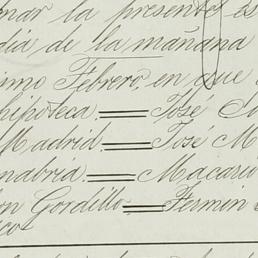 mar la presente es
dia de la mañana
imo Febrero, en que
hipoteca = José
Madrid = José M
nabria = Macario
on Gordillo = Fermin